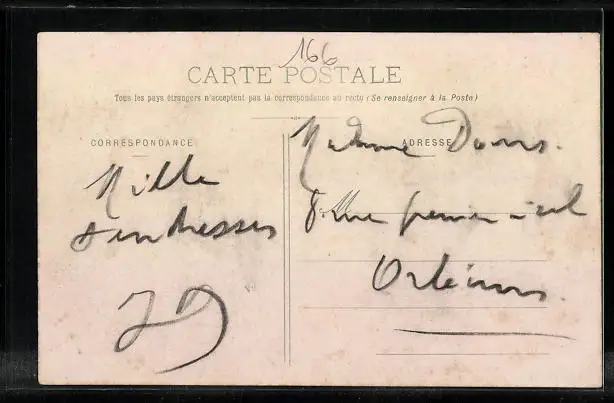 166
CARTE POSTALE
Tous les pays étrangers n'acceptent pas la correspondance au recto (Se renseigner à la Poste)
CORRESPONDANCE
ADRESSE
Mille
tendresses
JD
Madame
8 Rue
Orléans.